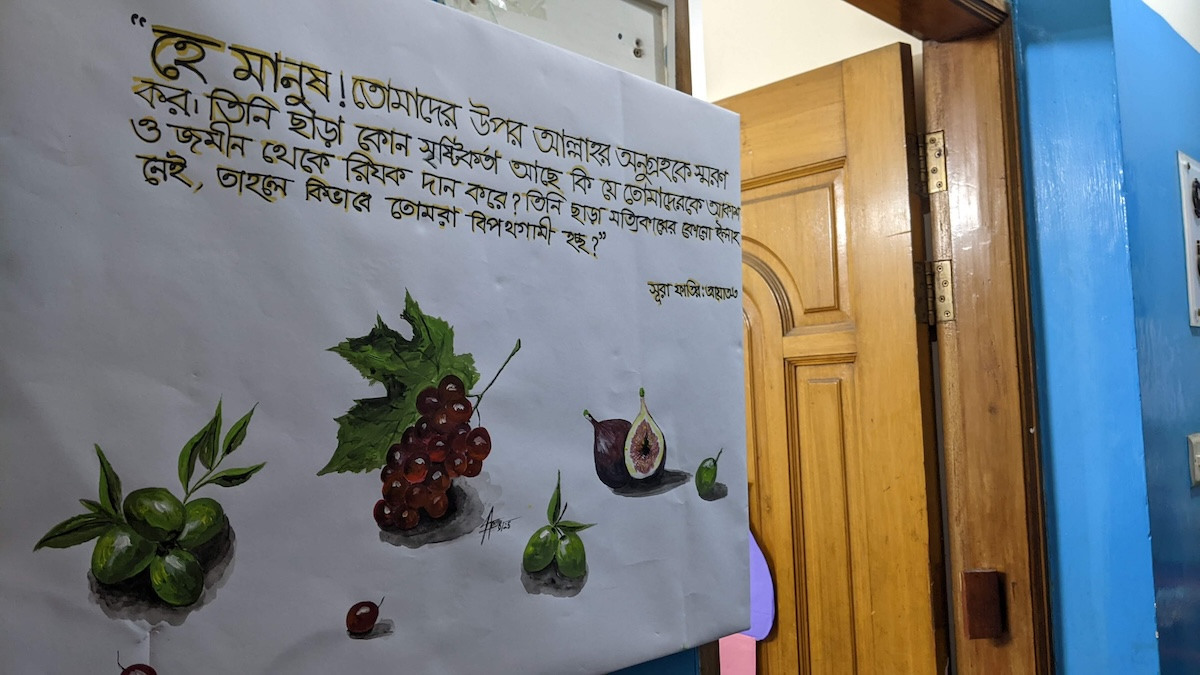 “হে মানুষ! তোমাদের উপর আল্লাহর অনুগ্রহকে স্মরণ
কর। তিনি ছাড়া কোন সৃষ্টিকর্তা আছে কি যে তোমাদেরকে আকাশ
ও জমীন থেকে রিযক দান করে? তিনি ছাড়া সত্যিকারের কোনো ইলাহ
নেই, তাহলে কিভাবে তোমরা বিপথগামী হচ্ছ?”
সূরা ফাতির: আয়াত